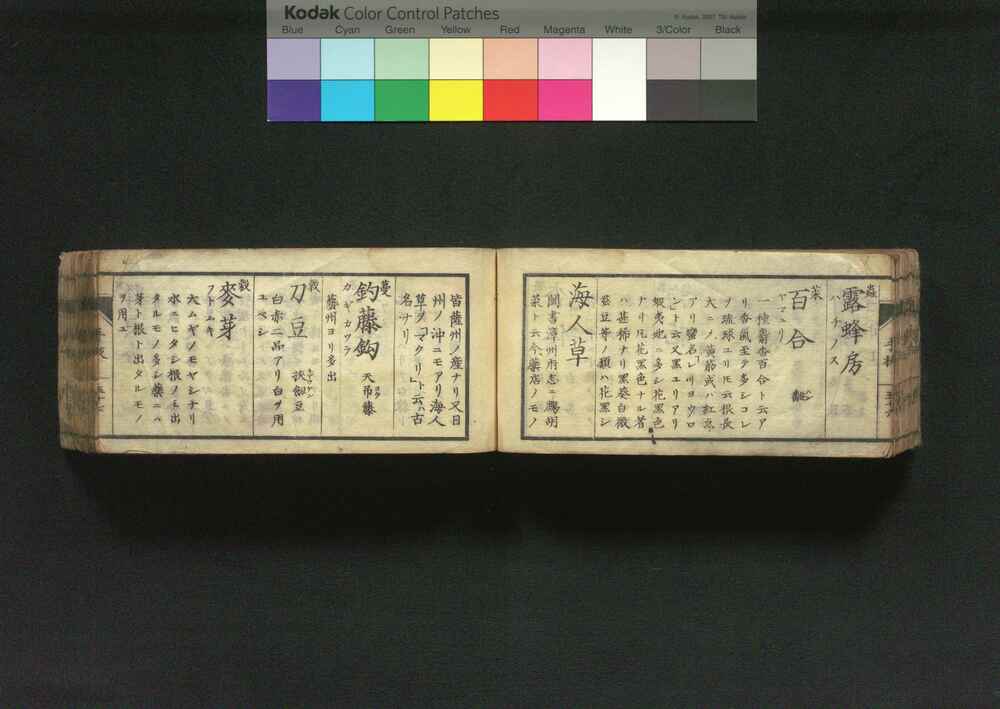 Kodak Color Control Patches
Blue Cyan Green Yellow Red Magenta White 3/Color Black
蟲
露蜂房
ハチノス
菜
百合
ヤマユリ
一種麝香百合ト云ア
リ香氣至テ多シコレ
ノ琉球ユリトモ云根長
大ニノ
アリ蠻名リリヨウロ
ント云又黒ユリアリ
蝦夷地ニ多シ花黒色
ナリ凡花黒色ナル者
ハ甚稀ナリ黒葵白薇
等ノ類ハ花黒シ
海人草
閩書漳州府志ニ鷓鴣
菜ト云今藥店ノモノ
皆薩州ノ産ナリ又日
州ノ沖ニモアリ海人
草ヲマクリト云ハ古
名ナリ
蔓
釣藤鈎 天吊藤
カギカヅラ
藝州ヨリ多出
穀
刀豆 挾劔豆
白赤二品アリ白ヲ用
ユベシ
穀
麥芽
フトムギ
大ムギノモヤシナリ
水ニヒタシ根ノミ出
タルモノ多シ藥ニハ
芽ト根ト出タルモノ
ヲ用ユ